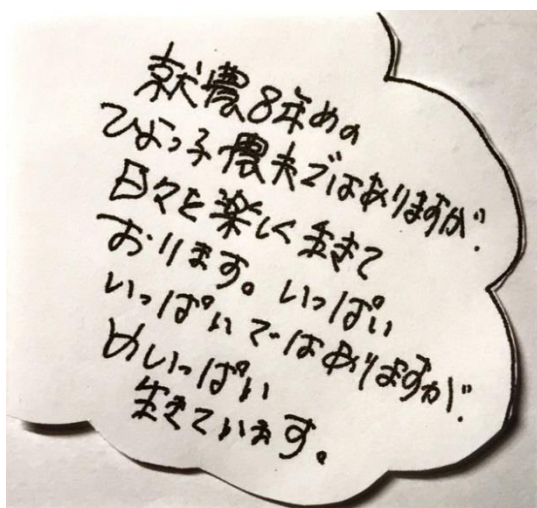 就農8年めの
ひよっ子農夫ではありますが、
日々を楽しく生きて
おります。いっぱい
いっぱいではありますが、
めいっぱい
生きています。